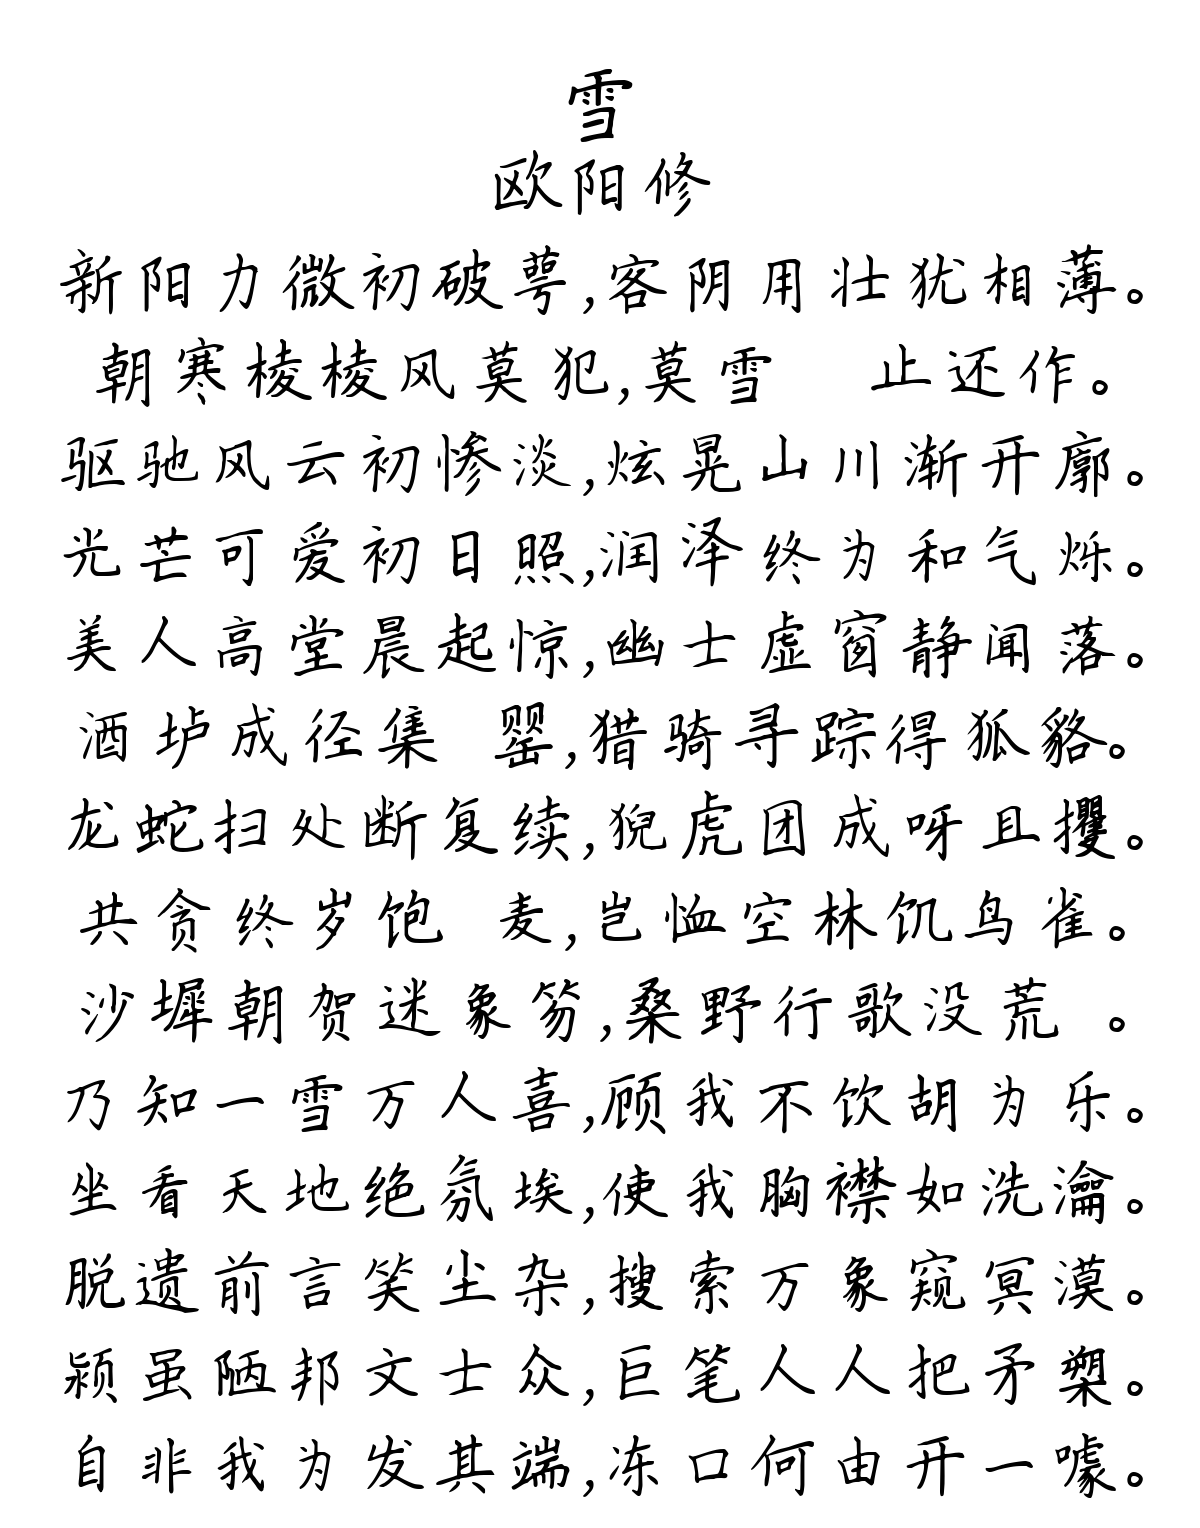 雪
欧阳修
新阳力微初破萼,客阴用壮犹相薄。
朝寒棱棱风莫犯,莫雪 止还作。
驱驰风云初惨淡,炫晃山川渐开廓。
光芒可爱初日照,润泽终为和气烁。
美人高堂晨起惊,幽士虚窗静闻落。
酒垆成径集 罂,猎骑寻踪得狐貉。
龙蛇扫处断复续,猊虎团成呀且攫。
共贪终岁饱 麦,岂恤空林饥鸟雀。
沙墀朝贺迷象笏,桑野行歌没荒 。
乃知一雪万人喜,顾我不饮胡为乐。
坐看天地绝氛埃,使我胸襟如洗瀹。
脱遗前言笑尘杂,搜索万象窥冥漠。
颍虽陋邦文士众,巨笔人人把矛槊。
自非我为发其端,冻口何由开一噱。